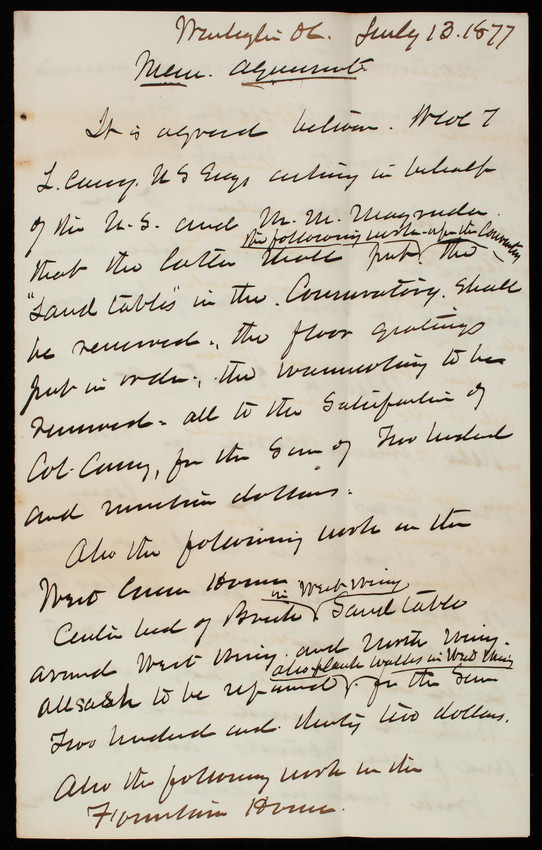 Washington DC. July 13. 1877
Mem. agreement
It is agreed between. Col T
L. Casey. U S Engs acting in behalf
of the U. S. and M. M. Magruder.
the following work upon the Conservatory
that the latter shall put the
"Sand tables" in the Conservatory. Shall
be renewed., the floor gratings
put in order., the wainscoting to be
renewed - all to the Satisfaction of
Col. Casey, for the Sum of Two hundred
and nineteen dollars.
Also the following work in the
West Green House
in West Wing
Center bed of Sand table
around West Wing. and North Wing.
also plank walks in West Wing
all sash to be repaired. for the Sum
Two hundred and. thirty two dollars.
Also the following work in the
Fountain House.